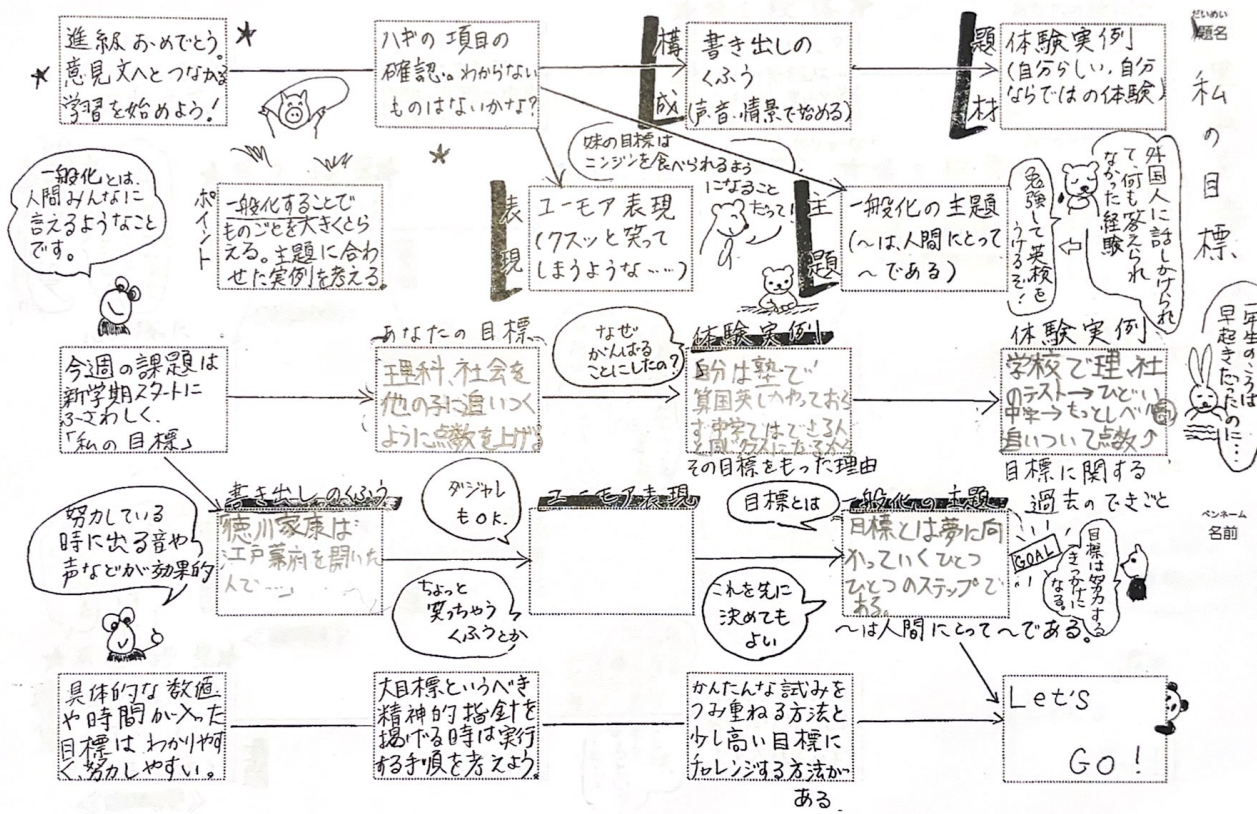 だいめい
題名
私の目標、
進級おめでとう。
意見文へとつながる
学習を始めよう!
ハギの項目の
確認。わからない
ものはないかな?
構成
書き出しの
くふう
(声、音、情景で始める)
題材
体験実例
(自分らしい、自分
ならではの体験)
一般化とは、
人間みんなに
言えるようなこと
です。
ポイント
一般化することで
ものごとを大きくとら
える。主題に合わ
せた実例を考える。
表現
ユーモア表現
(クスッと笑って
しまうような……)
妹の目標は
ニンジンを食べられるよう
になること
だって!
主題
一般化の主題
(〜は、人間にとって
〜である)
外国人に話しかけられ
て、何も答えられ
なかった経験
勉強して英検を
うけるぞ!
今週の課題は
新学期スタートに
ふさわしく、
「私の目標」
あなたの目標
理科、社会を
他の子に追いつく
ように点数を上げる
なぜ
がんばる
ことにしたの?
体験実例
自分は塾で
算国英しかやっておら
ず中学ではできる人
と同じクラスになるから
その目標をもった理由
体験実例
学校で理、社
のテスト→ひどい
中学→もっとレベル高
追いついて点数↑
目標に関する
過去のできごと
年生のころは
早起きだったのに…
努力している
時に出る音や
声などが効果的
書き出しのくふう
徳川家康は
江戸幕府を開いた
人で……
ダジャレ
もOK.
ちょっと
笑っちゃう
くふうとか
ユーモア表現
目標とは
これを先に
決めても
よい
一般化の主題
目標とは夢に向
かっていくひとつ
ひとつのステップで
ある。
〜は人間にとって〜である。
GOAL
目標は努力する
きっかけに
なる。
ペンネーム
名前
具体的な数値
や時間が入った
目標はわかりやす
く、努力しやすい。
大目標というべき
精神的指針を
掲げる時は実行
する手順を考えよう。
かんたんな試みを
つみ重ねる方法と
少し高い目標に
チャレンジする方法が
ある.
Let's
GO!